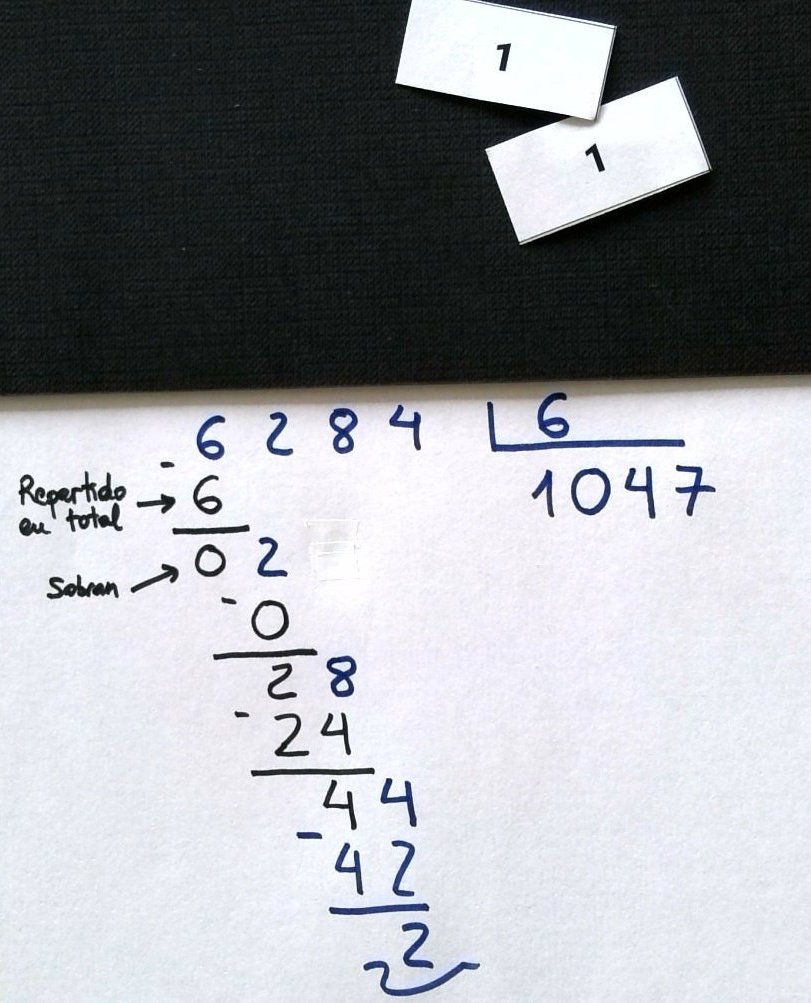 1
1
6 2 8 4 6
- 1047
Repartido → 6
en total
0 2
Sobran →
- 0
2 8
- 24
4 4
- 42
2